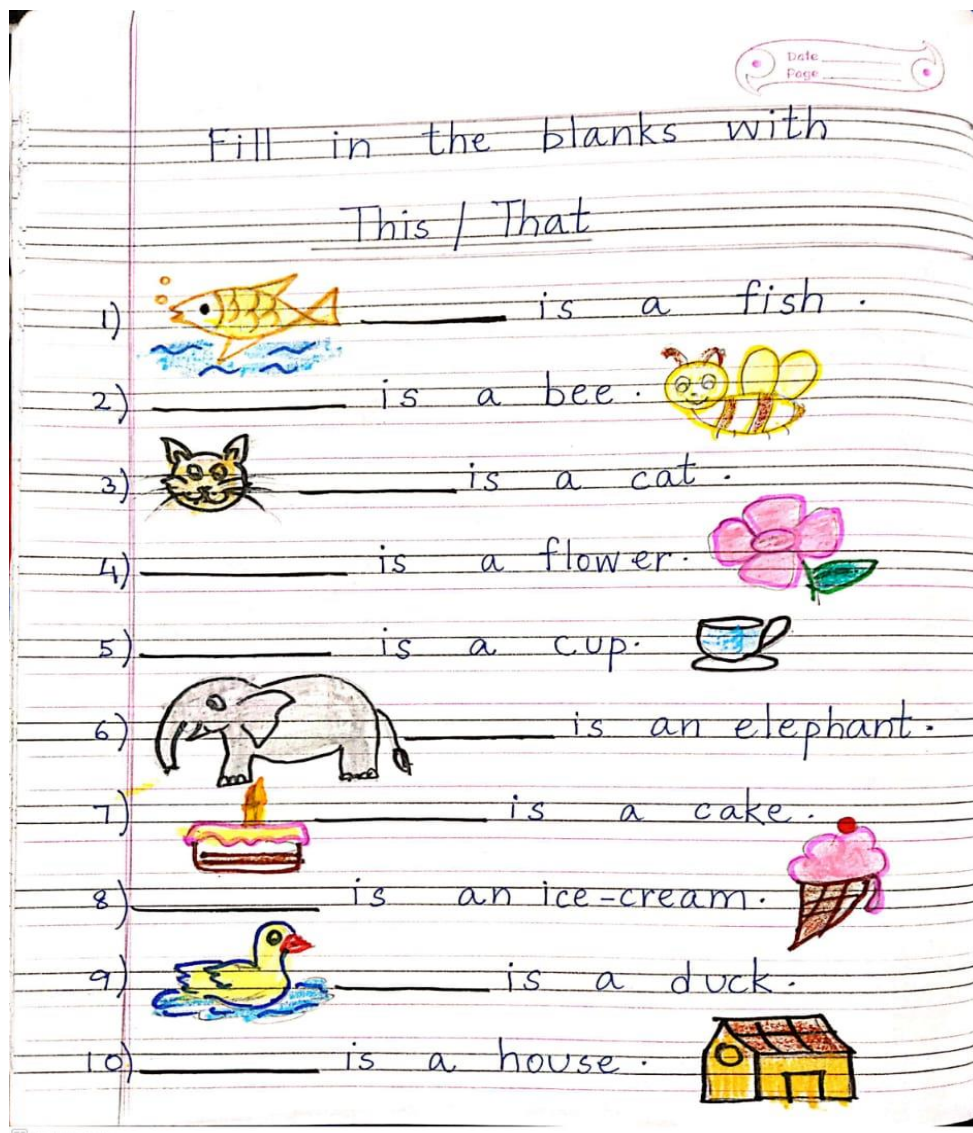 Date
Page
Fill in the blanks with
This / That
1) ______ is a fish.
2) ______ is a bee.
3) ______ is a cat.
4) ______ is a flower.
5) ______ is a cup.
6) ______ is an elephant.
7) ______ is a cake.
8) ______ is an ice-cream.
9) ______ is a duck.
10) ______ is a house.